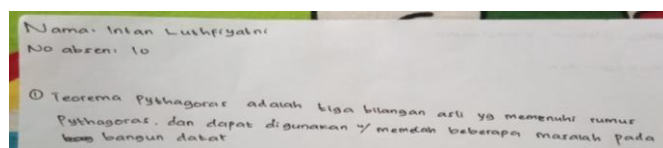 Nama. Intan Luthfiyatni
No absen. 10
① Teorema Pythagoras adalah tiga bilangan asli yg memenuhi rumus
Pythagoras. dan dapat digunakan u/ memdah beberapa masalah pada
bangun datar